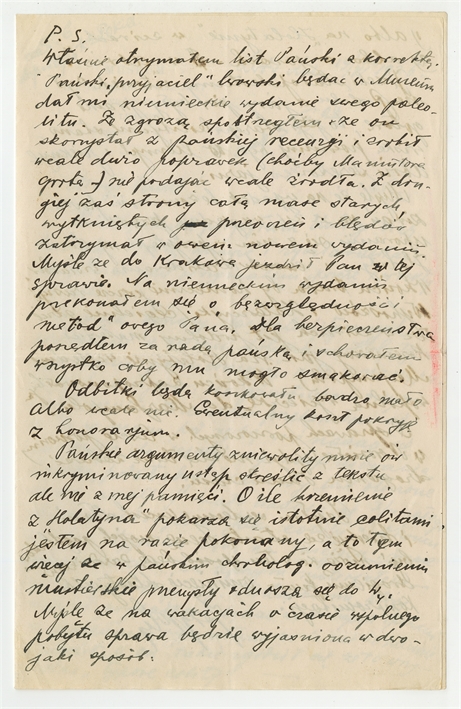 P. S.
Właśnie otrzymałem list Pański z korrektą.
Pański „przyjaciel" lwowski będąc w Muzeum
dał mi niemieckie wydanie swego paleo-
litu. Ze zgrozą spostrzegłem że on
skorzystał z Pańskiej recenzji i zrobił
wcale dużo poprawek (choćby Mamutowa
grota) nie podając wcale źródła. Z dru-
giej zaś strony całą masę starych,
wytkniętych przeoczeń i błędów
zatrzymał w owem nowem wydaniu.
Myślę że do Krakowa jeździł Pan w tej
sprawie. Na niemieckim wydaniu
przekonałem się o bezwzględności
metod" owego Pana. Dla bezpieczeństwa
poszedłem za radą pańską i schowałem
wszystko coby mu mogło smakować.
Odbitki będą kosztowały bardzo mało
Albo wcale nic. Ewentualny koszt pokryję
z honorarjum.
Pańskie argumenty zniewoliły mnie ów
inkryminowany ustęp skreślić z tekstu
ale nie z mej pamięci. O ile krzemienie
z „Holatyna" pokażą się istotnie eolitami
jestem na razie pokonany, a to tem
więcej że w pańskim rozumieniu
mustierskie przemysły odnoszą się do W₁.
Myślę że na wakacjach o czasie wspólnego
pobytu sprawa będzie wyjaśniona w dwo-
jaki sposób.